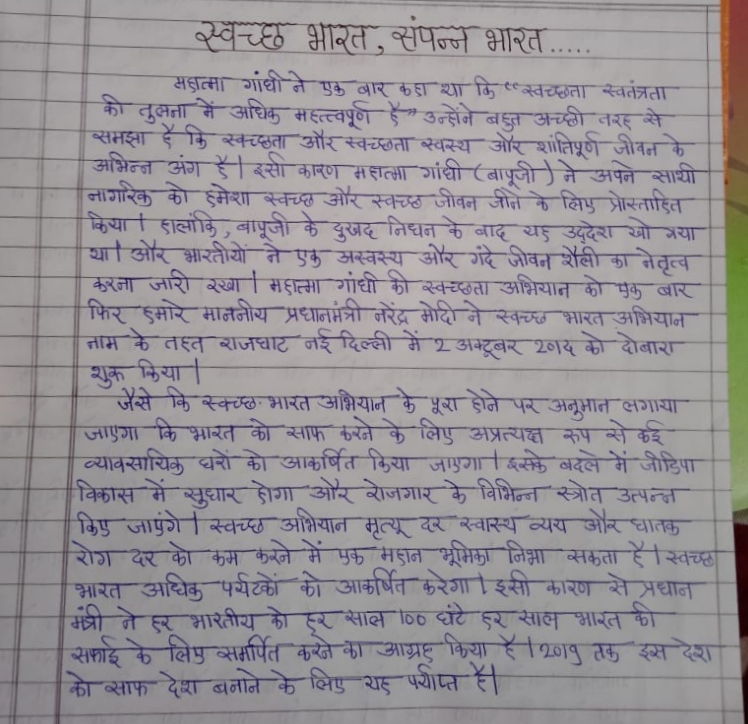 स्वच्छ भारत, संपन्न भारत.....
महात्मा गांधी ने एक बार कहा था कि "स्वच्छता स्वतंत्रता
की तुलना में अधिक महत्त्वपूर्ण है" उन्होंने बहुत अच्छी तरह से
समझा है कि स्वच्छता और स्वच्छता स्वस्थ और शांतिपूर्ण जीवन के
अभिन्न अंग है। इसी कारण महात्मा गांधी (बापूजी) ने अपने साथी
नागरिक को हमेशा स्वच्छ और स्वच्छ जीवन जीने के लिए प्रोत्साहित
किया। हालांकि, बापूजी के दुखद निधन के बाद यह उद्देश खो गया
था। और भारतीयों ने एक अस्वस्थ और गंदे जीवन शैली का नेतृत्व
करना जारी रखा। महात्मा गांधी की स्वच्छता अभियान को एक बार
फिर हमारे माननीय प्रधानमंत्री नरेंद्र मोदी ने स्वच्छ भारत अभियान
नाम के तहत राजघाट नई दिल्ली में 2 अक्टूबर को दोबारा
शुरू किया।
जैसे कि स्वच्छ भारत अभियान के पूरा होने पर अनुमान लगाया
जाएगा कि भारत को साफ करने के लिए अप्रत्यक्ष रूप से कई
व्यावसायिक घरों को आकर्षित किया जाएगा। इसके बदले में जीडिपी
विकास में सुधार होगा और रोजगार के विभिन्न स्त्रोत उत्पन्न
किए जाएंगे। स्वच्छ अभियान मृत्यू दर स्वास्थ व्यय और घातक
रोग दर को कम करने में एक महान भूमिका निभा सकता है। स्वच्छ
भारत अधिक पर्यटकों को आकर्षित करेगा। इसी कारण से प्रधान
मंत्री ने हर भारतीय को हर साल 100 घंटे हर साल भारत की
सफाई के लिए समर्पित करने का आग्रह किया है। 2019 तक इस देश
को साफ देश बनाने के लिए यह पर्याप्त है।